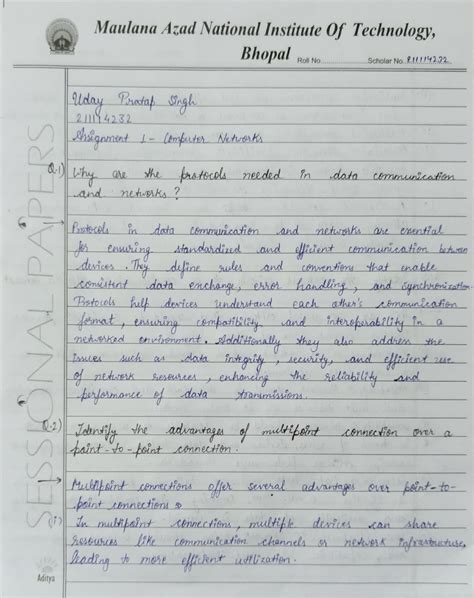 Maulana Azad National Institute Of Technology,
Bhopal Roll No.................... Scholar No. 211114232
SESSIONAL PAPERS
Uday Pratap Singh
211114232
Assignment 1 - Computer Networks
Q-1) Why are the protocols needed in data communication
and networks ?
→ Protocols in data communication and networks are essential
for ensuring standardized and efficient communication between
devices. They define rules and conventions that enable
consistent data exchange, error handling, and synchronization.
Protocols help devices understand each other's communication
format, ensuring compatibility and interoperability in a
networked environment. Additionally they also address the
issues such as data integrity, security, and efficient use
of network resources, enhancing the reliability and
performance of data transmissions.
Q-2) Identify the advantages of multipoint connection over a
point-to-point connection.
→ Multipoint connections offer several advantages over point-to-
point connections :
(i) In multipoint connections, multiple devices can share
resources like communication channels or network infrastructure,
leading to more efficient utilization.
Aditya